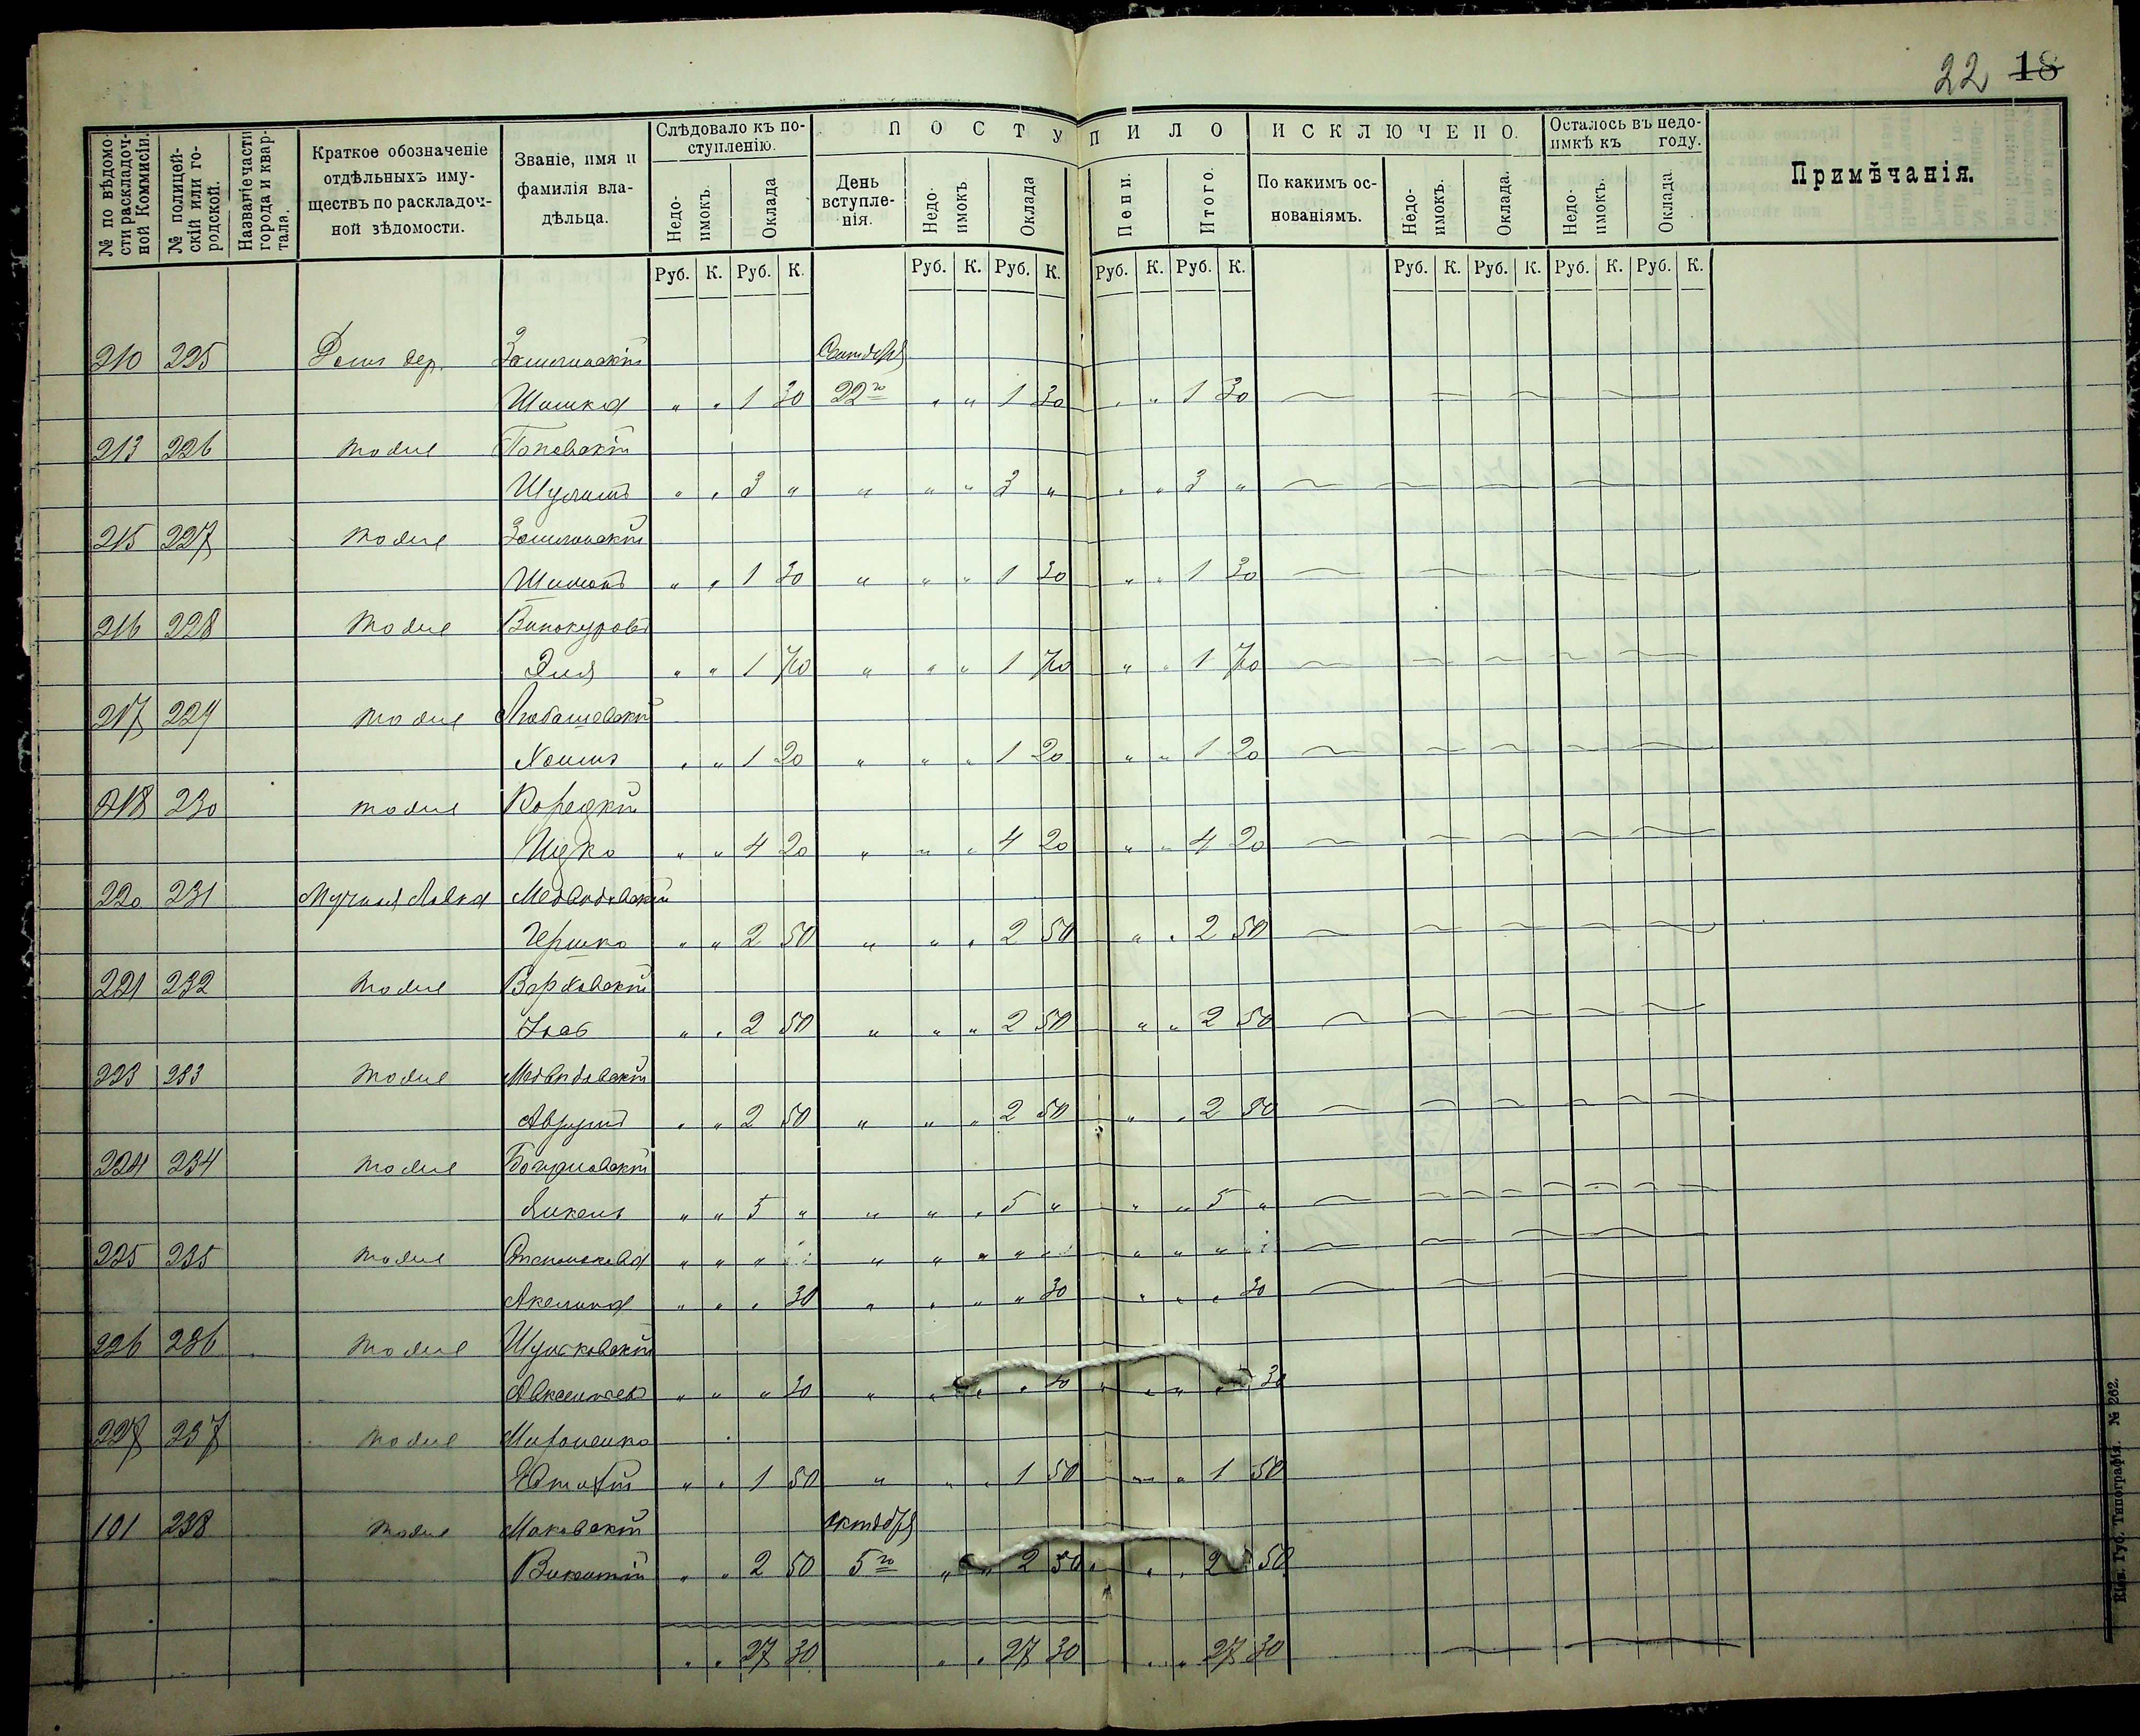 22 18
№ по вѣдомости раскладочной Коммисіи.
№ полицейскій или городской.
Названіе части города и квартала.
Краткое обозначеніе отдѣльныхъ имуществъ по раскладочной вѣдомости.
Званіе, имя и фамилія владѣльца.
Слѣдовало къ поступленію.
ПОСТУПИЛО
ИСКЛЮЧЕНО.
Осталось въ недоимкѣ къ году.
Примѣчанія.
Недоимокъ. Оклада
День вступленія. Недоимокъ Оклада Пени. Итого.
По какимъ основаніямъ. Недоимокъ. Оклада. Недоимокъ. Оклада
Руб. К. Руб. К. Руб. К. Руб. К. Руб. К. Руб. К. Руб. К. Руб. К. Руб. К. Руб. К.
210 225 Домъ дер. Сентября
" " 1 30 22го " " 1 30 " " 1 30
213 226 тоже
" " 3 " " " " 3 " " " 3 "
215 227 тоже
Шимонъ " " 1 30 " " " 1 30 " " 1 30
216 228 тоже Винокуровъ
Эля " " 1 70 " " " 1 70 " " 1 70
217 229 тоже Любашевскій
" " 1 20 " " " 1 20 " " 1 20
218 230 тоже Корецкій
Ицко " " 4 20 " " " 4 20 " " 4 20
220 231 Мучная Лавка Медвѣдовскій
Гершко " " 2 50 " " " 2 50 " " 2 50
221 232 тоже
" " 2 50 " " " 2 50 " " 2 50
223 233 тоже Медвѣдовскій
Аврумъ " " 2 50 " " " 2 50 " " 2 50
224 234 тоже Богуславскій
Янкель " " 5 " " " " 5 " " " 5 "
225 235 тоже " " " " " " " " " "
Акелина " " " 30 " " " " 30 " " " 30
226 236 тоже Шульковскій
Авксентій " " " 30 " " " " 30 " " " 30
227 237 тоже Мироненко
Евтихій " " 1 50 " " " 1 50 " " 1 50
101 238 тоже Маковскій октября
Викентій " " 2 50 5го " " 2 50 " " 2 50
" " 27 30 " " 27 30 " " 27 30
Кіев. Губ. Типографія. № 262.